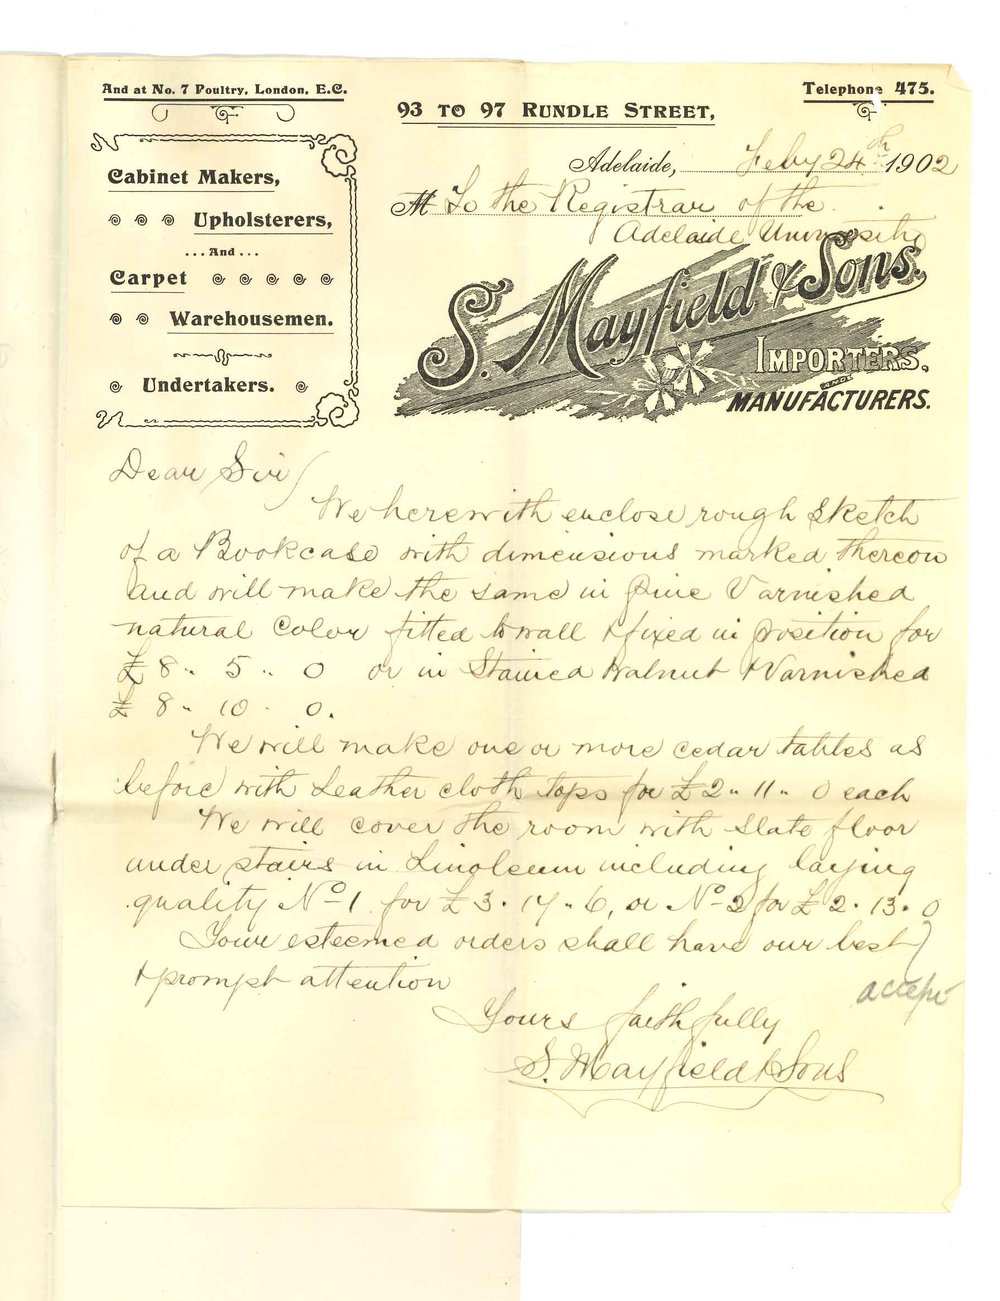 And at No. 7 Poultry, London, E.C.
Telephone 475.
93 TO 97 RUNDLE STREET,
Cabinet Makers,
Upholsterers,
...And...
Carpet
Warehousemen.
Undertakers.
Adelaide, Feby 24th 1902
M To the Registrar of the
Adelaide University
S. Mayfield & Sons.
IMPORTERS,
AND
MANUFACTURERS.
Dear Sir/
We herewith enclose rough sketch
of a Bookcase with dimensions marked thereon
and will make the same in pine Varnished
natural color fitted to wall & fixed in position for
£8 " 5 " 0 or in Stained Walnut & Varnished
£8 " 10 " 0.
We will make one or more cedar tables as
before with Leather cloth tops for £2 " 11 " 0 each
We will cover the room with slate floor
under stairs in Linoleum including laying
quality No 1 for £3 " 17 " 6, or No 2 for £2 " 13 " 0
Your esteemed orders shall have our best
& prompt attention
accept
Yours faithfully
S. Mayfield & Sons